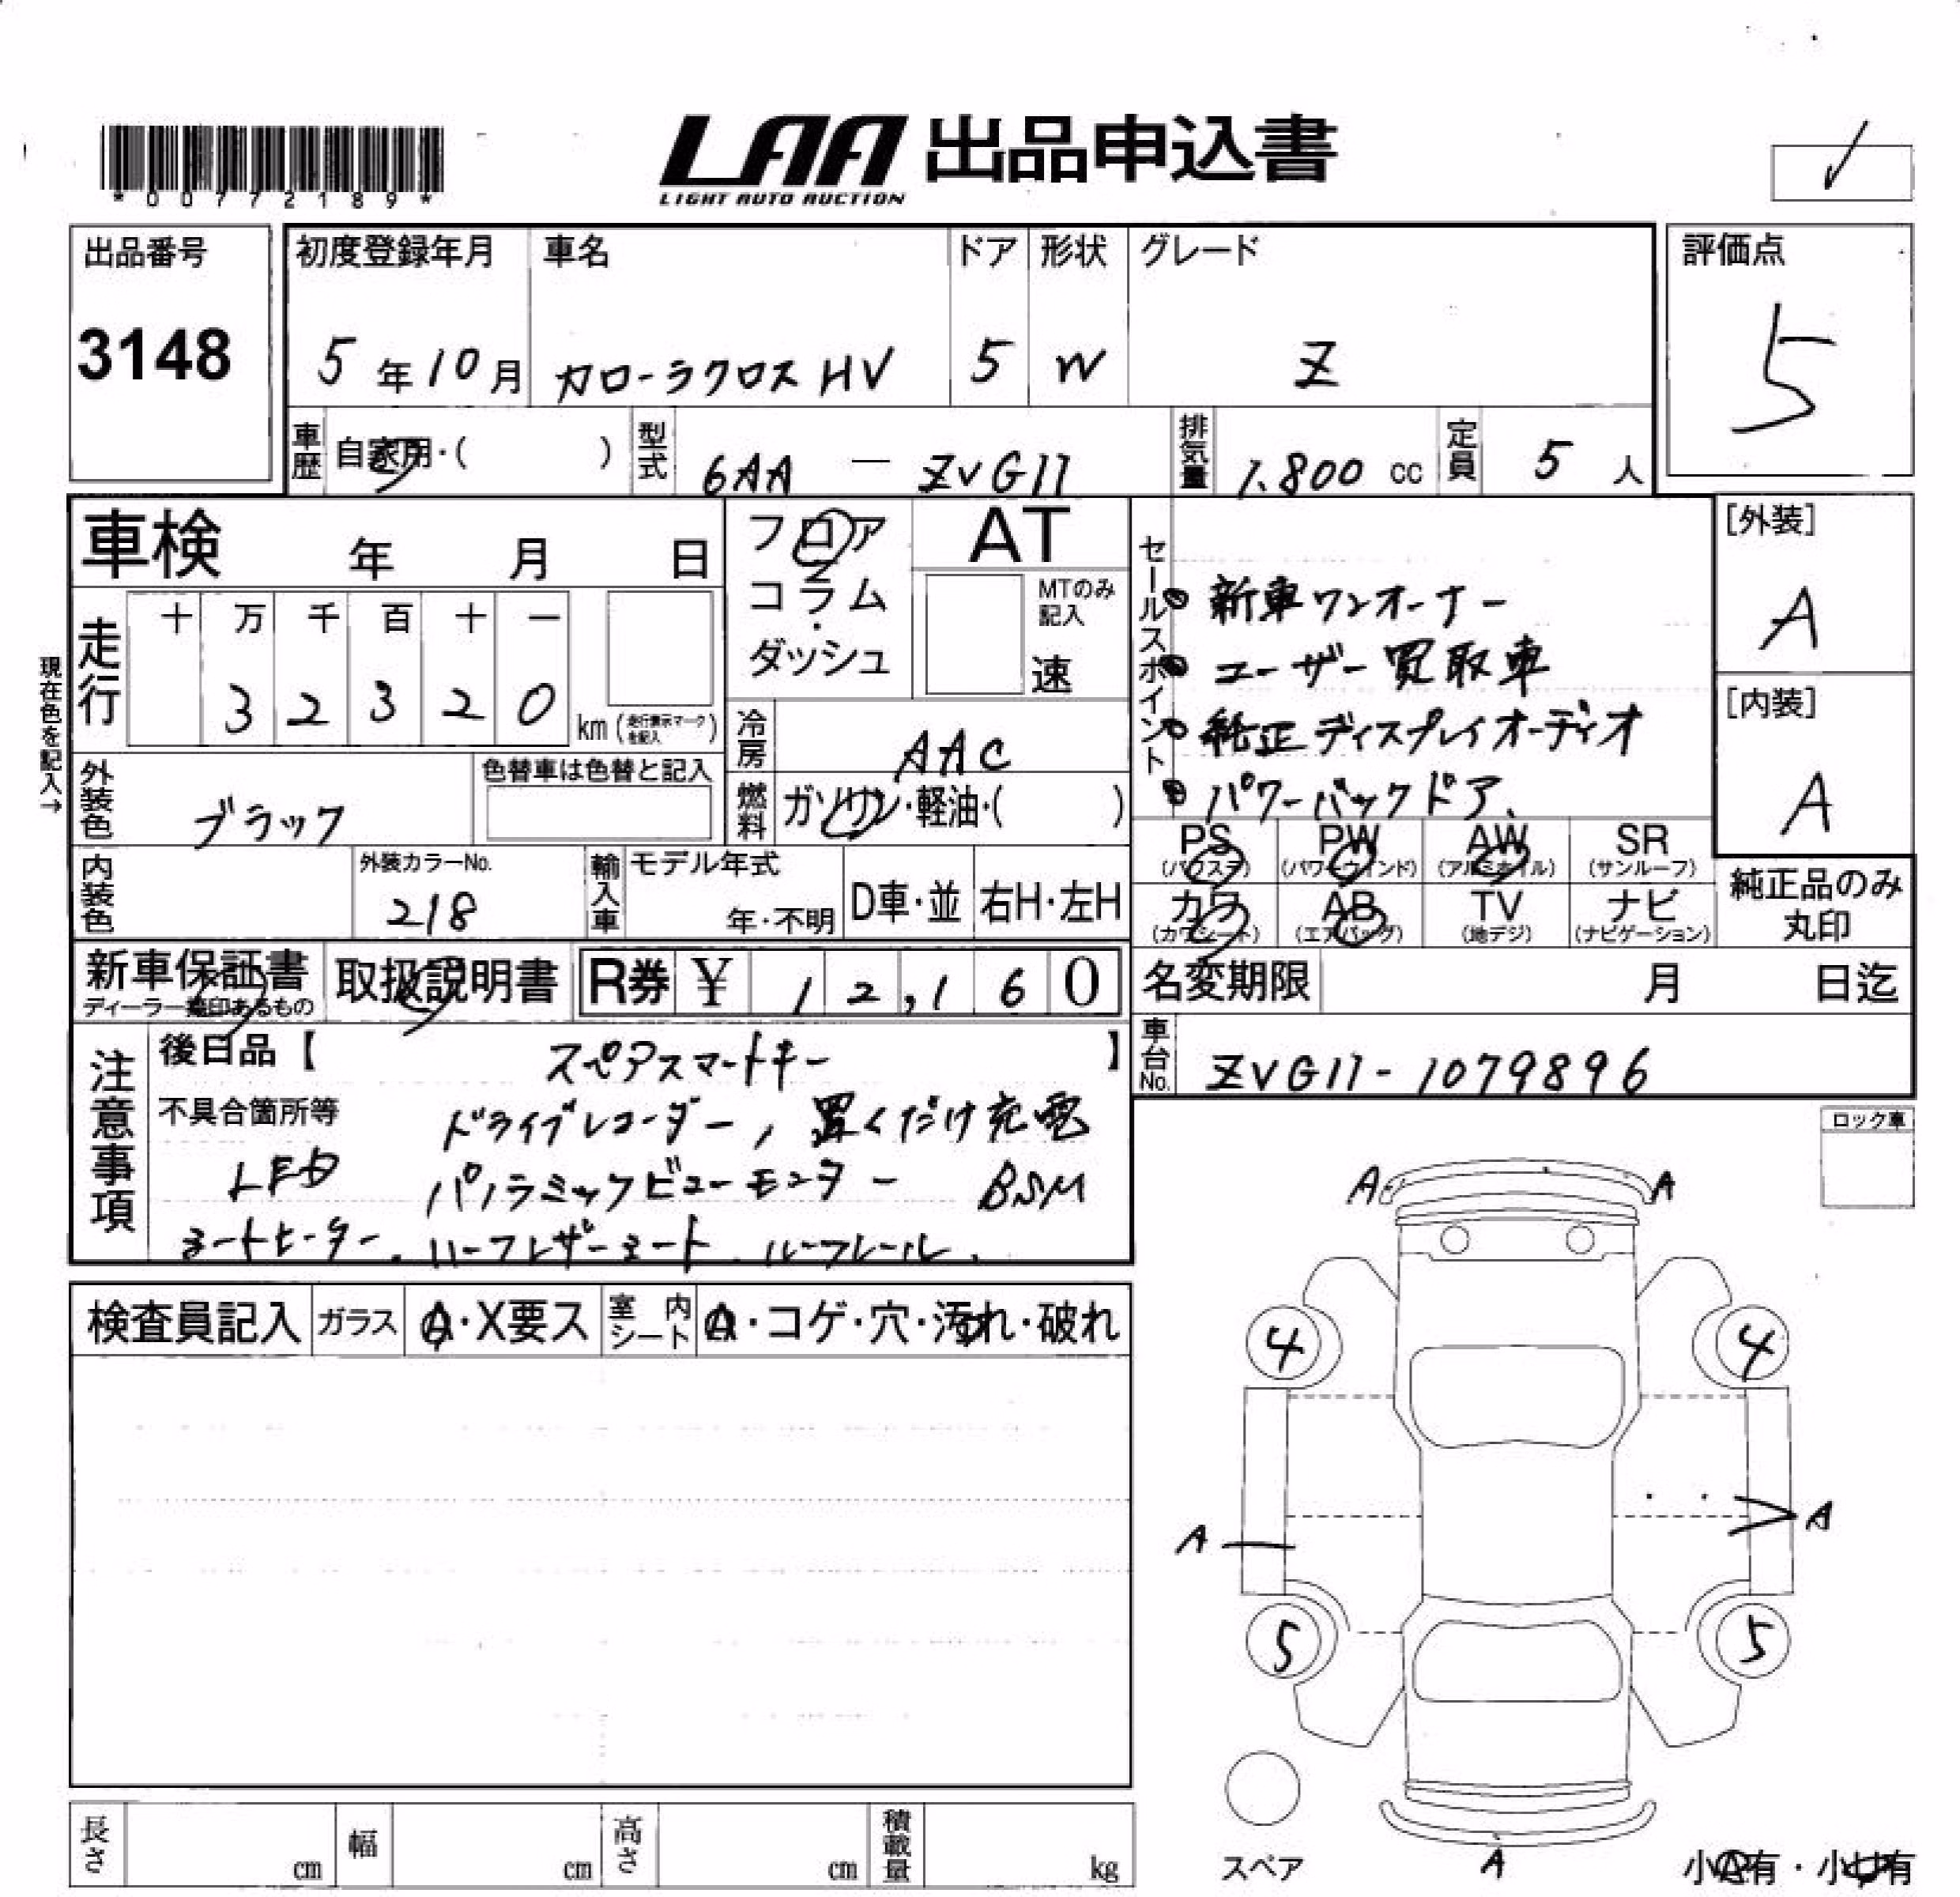 *00772189*
LAA 出品申込書
LIGHT AUTO AUCTION
出品番号
3148
初度登録年月
5年10月
車名
カローラクロス HV
ドア
5
形状
W
グレード
Z
評価点
5
車歴
自家用・( )
型式
6AA — ZVG11
排気量
1.800 cc
定員
5 人
車検 年 月 日
フロア
コラム
・
ダッシュ
AT
MTのみ
記入
速
セールスポイント
新車ワンオーナー
ユーザー買取車
純正ディスプレイオーディオ
パワーバックドア、
[外装]
A
[内装]
A
現在色を記入→
走行
十 万 千 百 十 一
3 2 3 2 0
km (走行表示マークを記入)
冷房
AAC
外装色
ブラック
色替車は色替と記入
燃料
ガソリン・軽油・( )
PS
(パワステ)
PW
(パワーウィンド)
AW
(アルミホイル)
SR
(サンルーフ)
カワ
(カワシート)
AB
(エアバッグ)
TV
(地デジ)
ナビ
(ナビゲーション)
純正品のみ
丸印
内装色
外装カラーNo.
218
輸入車
モデル年式
年・不明
D車・並
右H・左H
新車保証書
ディーラー捺印あるもの
取扱説明書
R券 ¥ 12,160
名変期限 月 日迄
車台No.
ZVG11-1079896
注意事項
後日品【 スペアスマートキー 】
不具合箇所等 ドライブレコーダー, 置くだけ充電
LED パノラミックビューモニター BSM
シートヒーター. ハーフレザーシート. ルーフレール.
ロック車
検査員記入
ガラス
A・X要ス
室内シート
A・コゲ・穴・汚れ・破れ
A A
4 4
A A
5 5
スペア
A
小A有・小U有
長さ cm
幅 cm
高さ cm
積載量 kg